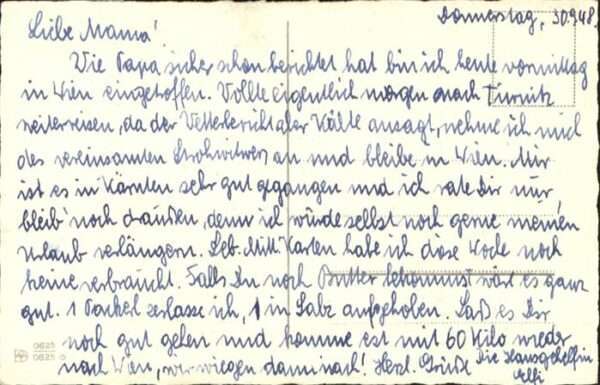 Donnerstag, 30.9.48.
Liebe Mama!
Wie Papa sicher schon berichtet hat bin ich heute vormittag
in Wien eingetroffen. Wollte eigentlich morgen nach Türnitz
weiterreisen, da der Wetterbericht aber Kälte ansagt, nehme ich mich
des vereinsamten Strohwitwers an und bleibe in Wien. Mir
ist es in Kärnten sehr gut gegangen und ich rate Dir nur,
bleib' noch draußen, denn ich würde selbst noch gerne meinen
Urlaub verlängern. Leb. Mitt. Karten habe ich diese Woche noch
keine verbraucht. Falls Du noch Butter bekommst wäre es ganz
gut. 1 Packerl zerlasse ich, 1 in Salz aufgehoben. Laß es Dir
noch gut gehen und komme erst mit 60 Kilo wieder
nach Wien, wir wiegen dann nach! Herzl. Grüße Die Hausgehilfin
Elli
0625
0625 o